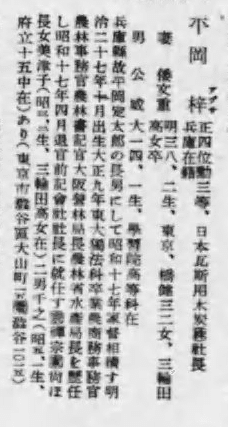 平岡 梓 アヅサ
正四位勳三等、日本瓦斯用木炭㈱社長
兵庫在籍
妻 倭文重 明三八、二生、東京、橋健三二女、三輪田
高女卒
男 公威 大一四、一生、學習院高等科在
兵庫縣故平岡定太郎の長男にして昭和十七年家督相續す明
治二十七年十月出生大正九年東大獨法科卒業農商務事務官
農林事務官農林書記官大阪營林局長農林省水產局長を歷任
し昭和十七年四月退官前記會社社長に就任す 宗 尙ほ
長女美津子(昭三、二生、三輪田高女在)二男千之(昭五、一生、
府立十五中在)あり(東京市澁谷區大山町 澁谷